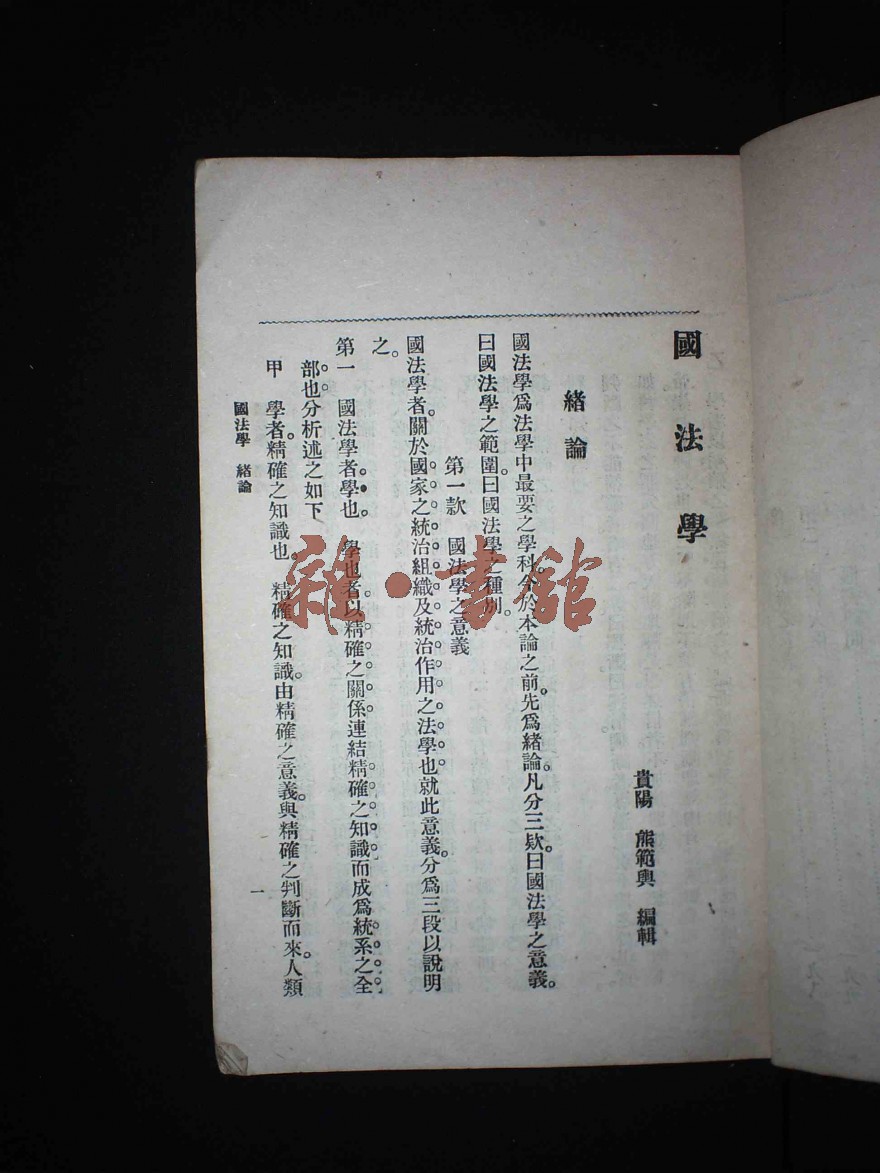 國法學
貴陽　熊範輿　編輯
緒論
國法學爲法學中最要之學科。今於本論之前。先爲緒論。凡分三欵。曰國法學之意義。
曰國法學之範圍。曰國法學之種別。
第一款　國法學之意義
國法學者。關於國家之統治組織及統治作用之法學也。就此意義。分爲三段以說明
之。
第一　國法學者學也。　學也者。以精確之關係連結精確之知識而成爲統系之全
部也。分析述之如下
甲　學者。精確之知識也。　精確之知識。由精確之意義。與精確之判斷而來。人類
國法學　緒論
一
雜·書館